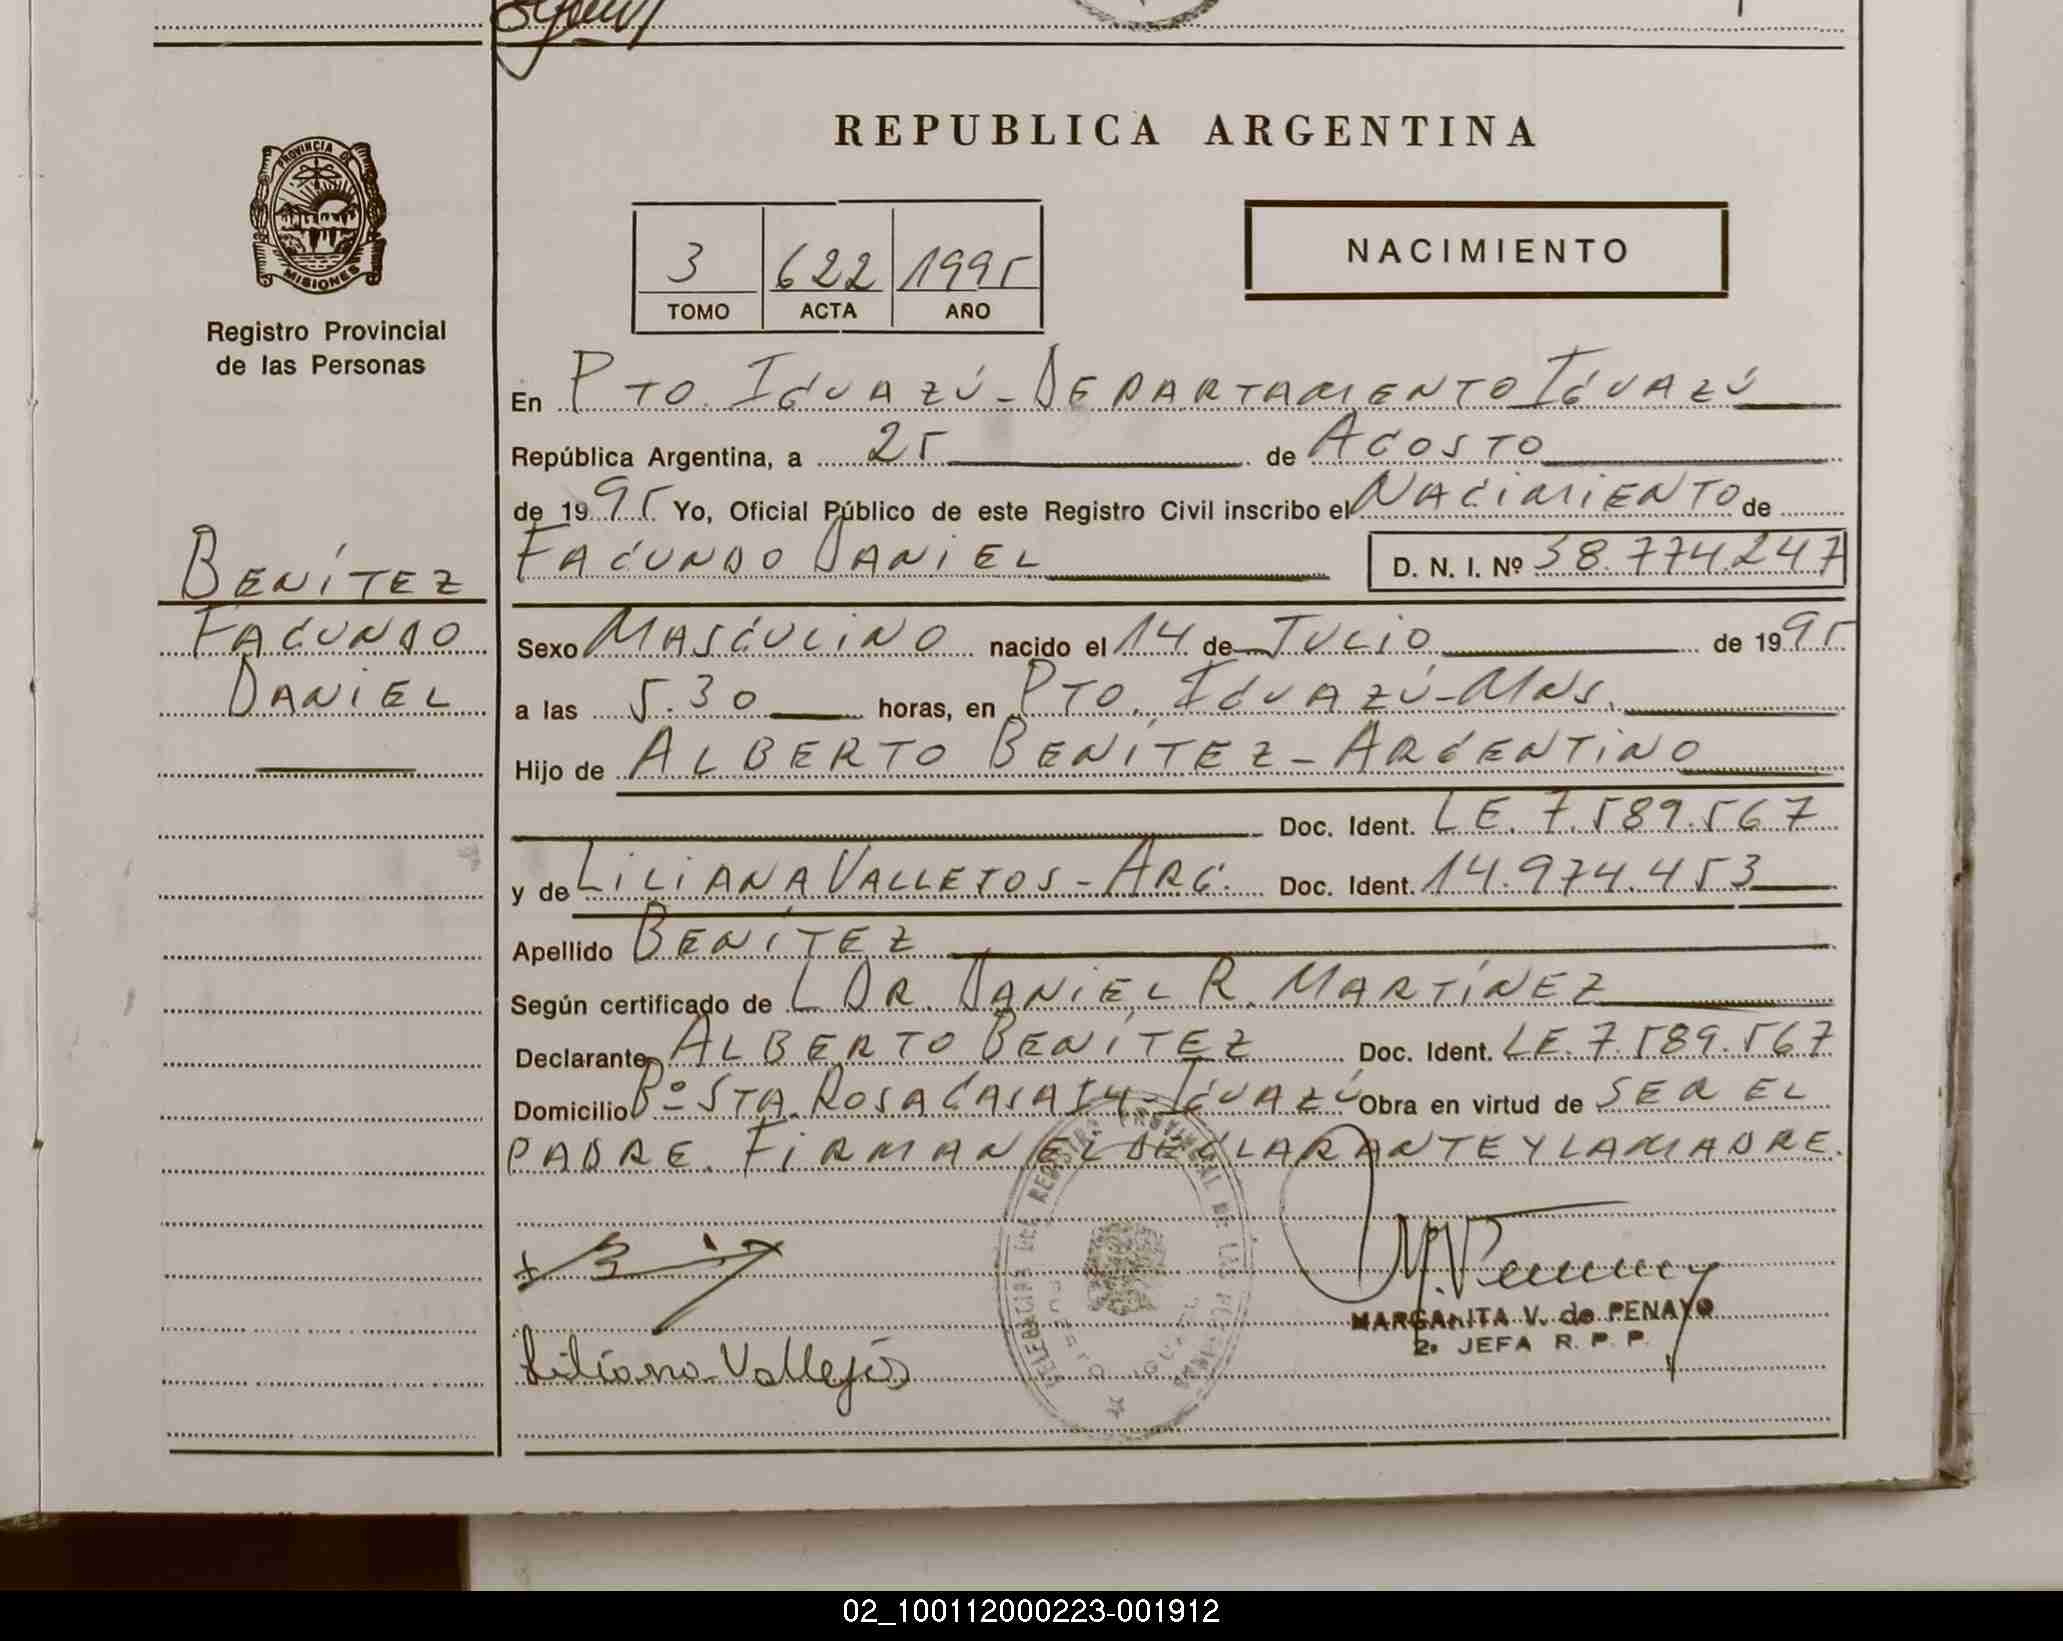 REPUBLICA ARGENTINA
PROVINCIA DE
MISIONES
Registro Provincial
de las Personas
3 622 1995
TOMO ACTA AÑO
NACIMIENTO
En PTO. IGUAZÚ - DEPARTAMENTO IGUAZÚ
República Argentina, a 25 de AGOSTO
de 1995 Yo, Oficial Público de este Registro Civil inscribo el NACIMIENTO de
FACUNDO DANIEL D. N. I. Nº 38.774.247
BENÍTEZ
FACUNDO
DANIEL
Sexo MASCULINO nacido el 14 de JULIO de 1995
a las 5.30 horas, en PTO. IGUAZÚ - MNS.
Hijo de ALBERTO BENÍTEZ - ARGENTINO
Doc. Ident. LE. 7.589.567
y de LILIANA VALLEJOS - ARG. Doc. Ident. 14.974.453
Apellido BENÍTEZ
Según certificado de L DR. DANIEL R. MARTÍNEZ
Declarante ALBERTO BENÍTEZ Doc. Ident. LE. 7.589.567
Domicilio Bº STA. ROSA CASA 54 - IGUAZÚ Obra en virtud de SER EL
PADRE. FIRMAN EL DECLARANTE Y LA MADRE.
Liliana Vallejos
MARGARITA V. de PENAYO
2ª JEFA R. P. P.
02_100112000223-001912